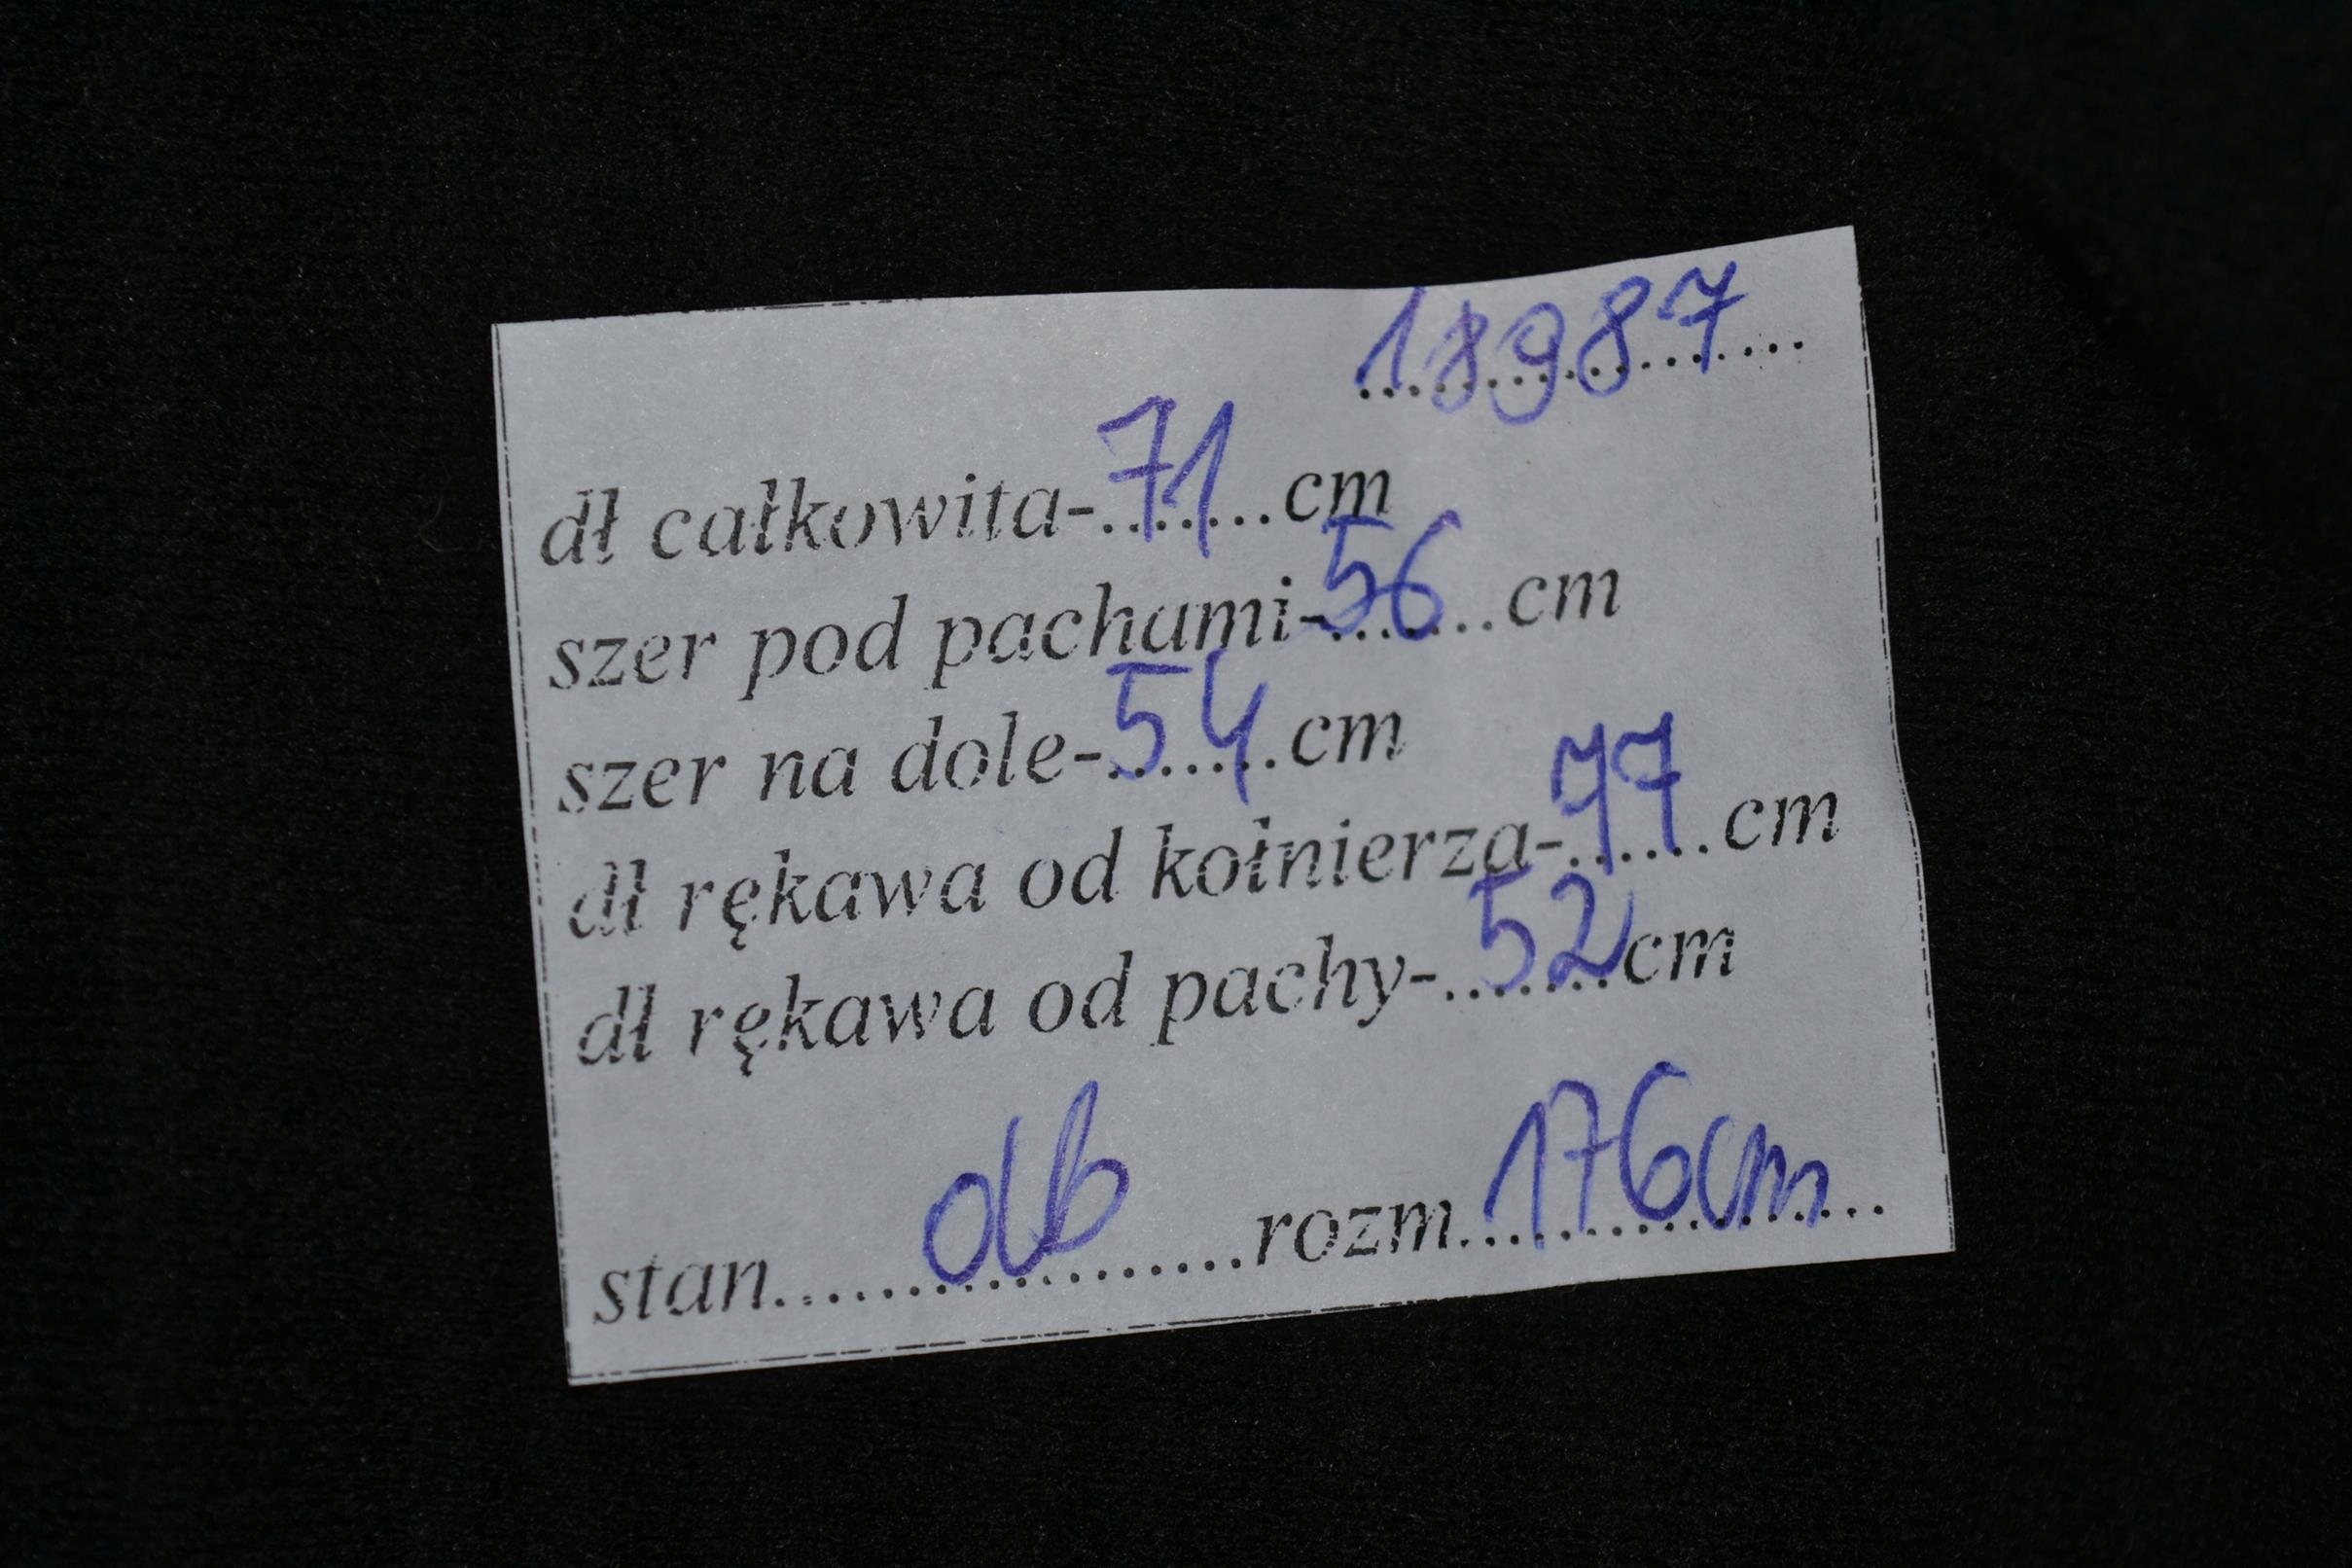 18987
dł całkowita-71cm
szer pod pachami-56cm
szer na dole-54cm
dł rękawa od kołnierza-77cm
dł rękawa od pachy-52cm
stan db rozm 176cm